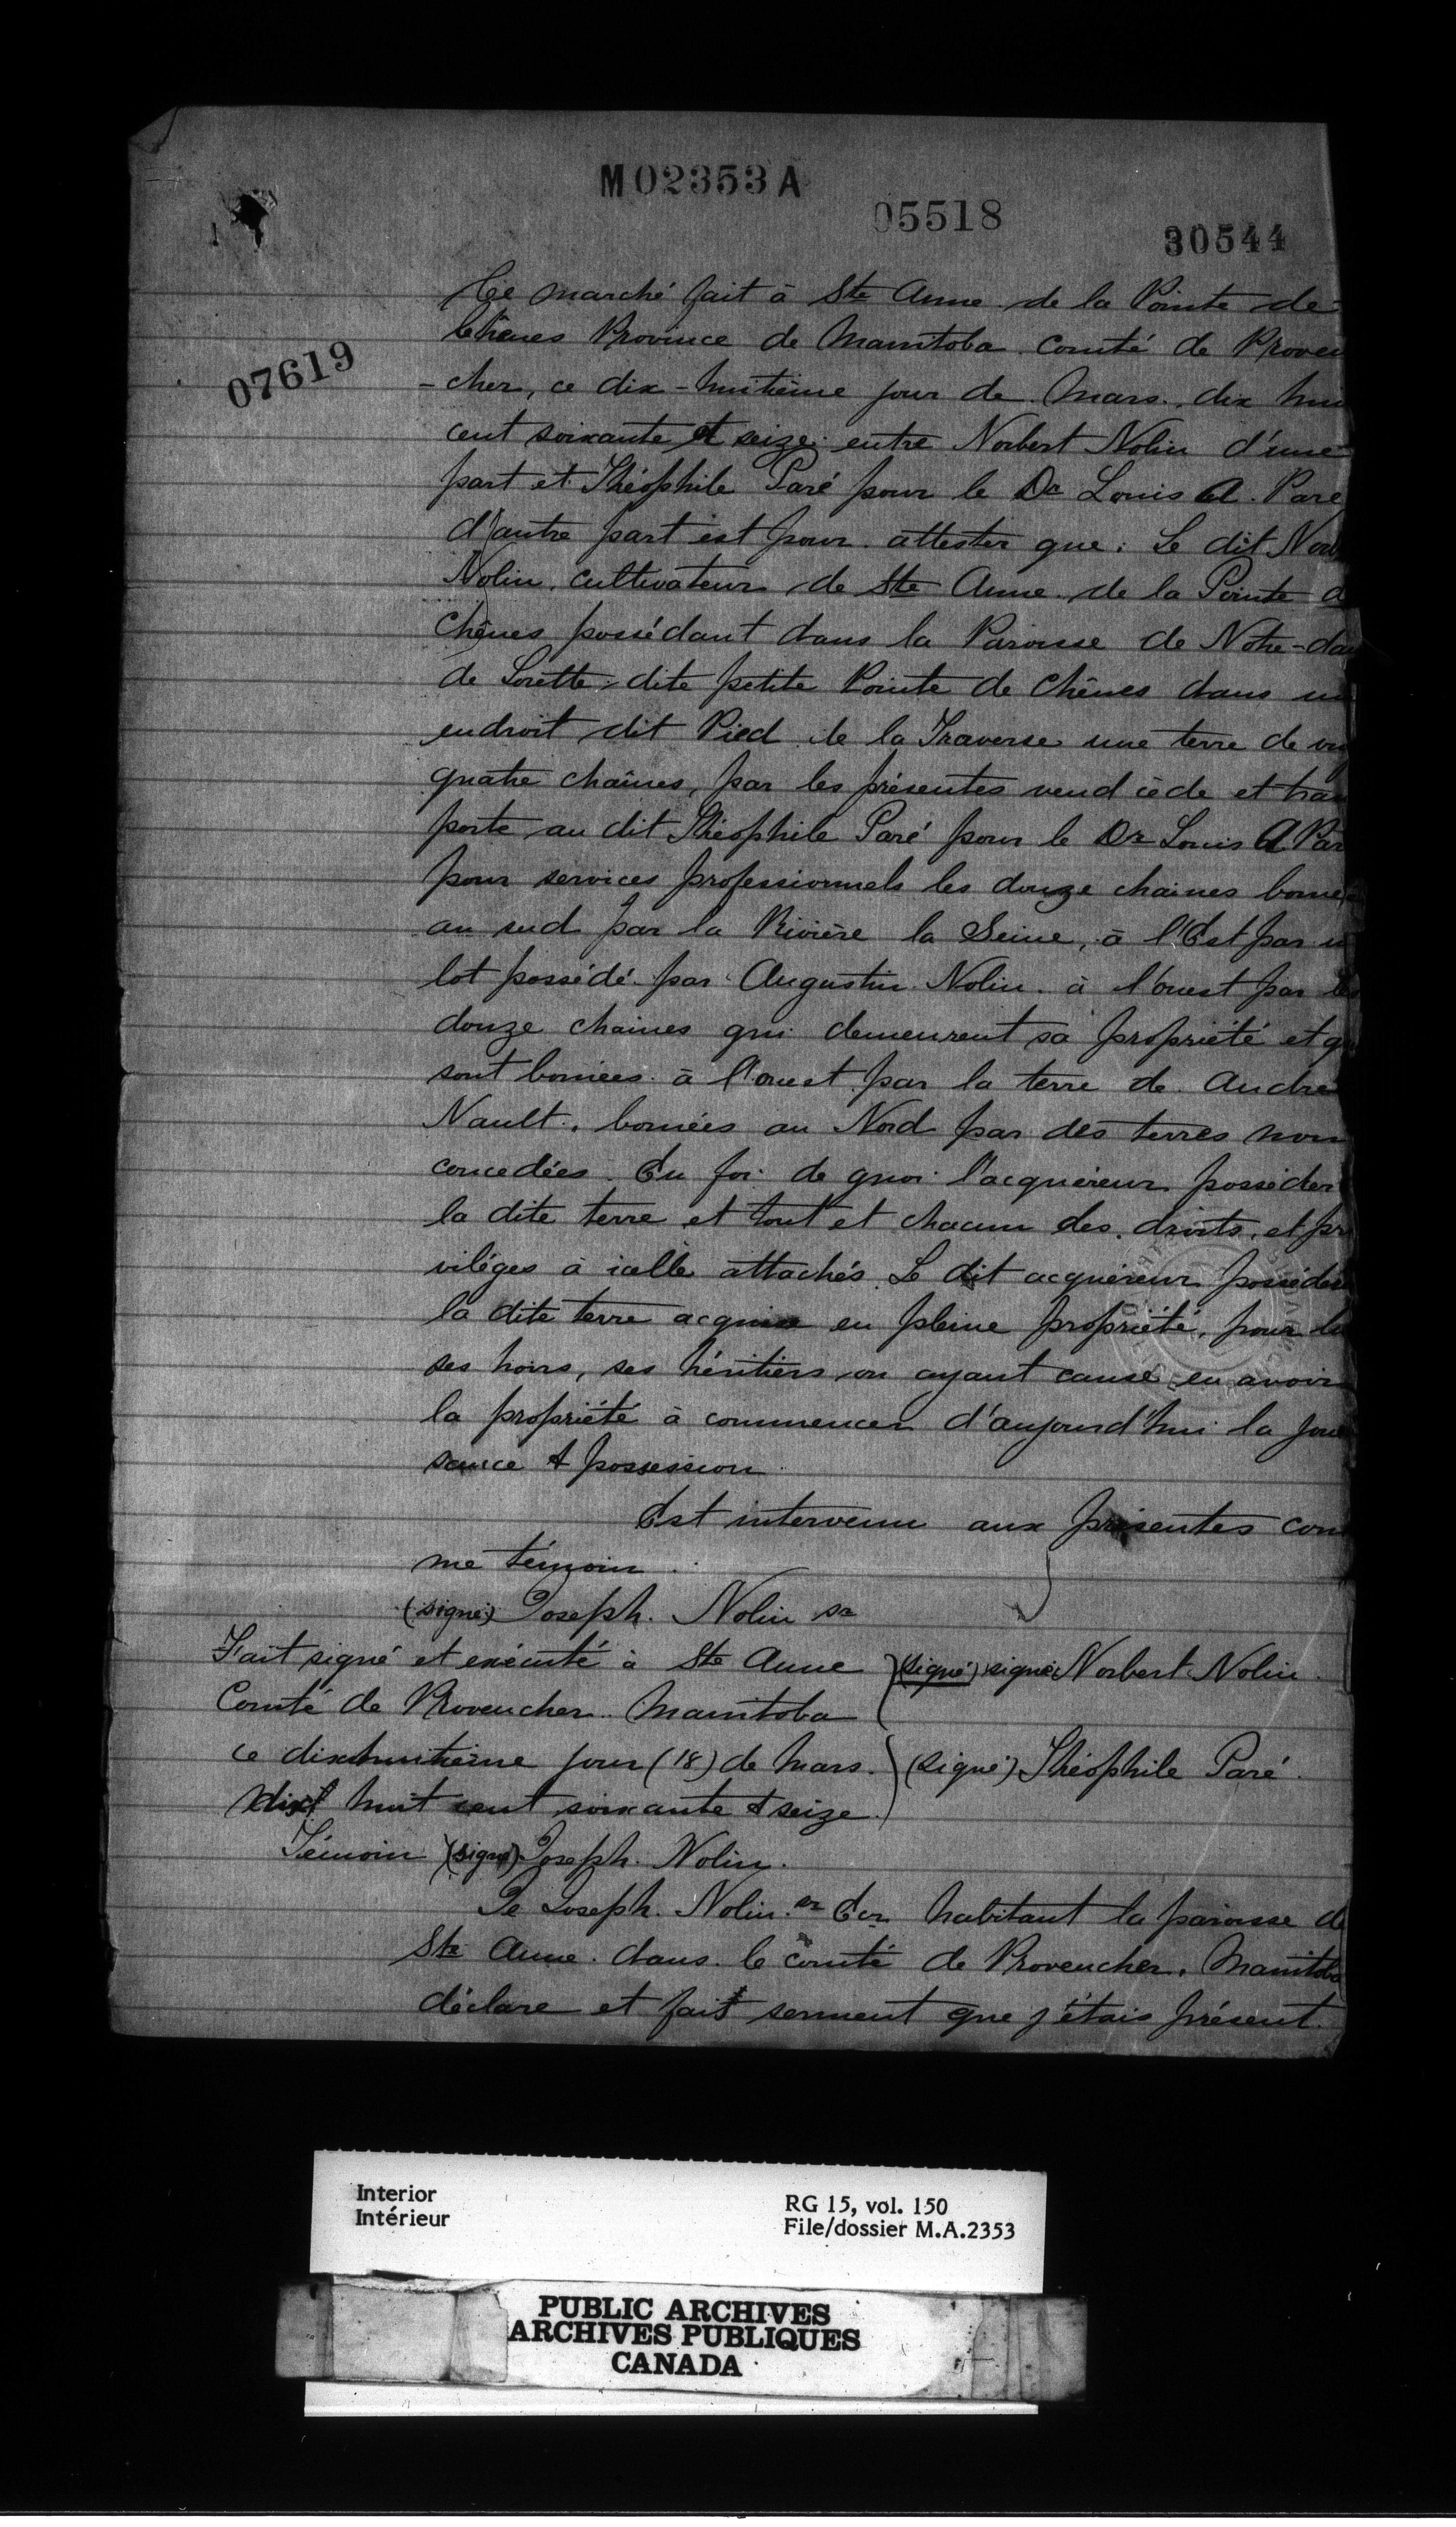 M02353A
05518
30544
07619
Ce marché fait à Ste Anne de la Pointe de
Chênes Province de Manitoba comté de Proven
-cher, ce dix-huitième jour de Mars, dix hui
cent soixante et seize entre Norbert Nolin d'une
part et Théophile Paré pour le Dr Louis A. Paré
d'autre part est pour attester que: Le dit Nor
Nolin, cultivateur de Ste Anne de la Pointe d
Chênes possédant dans la Paroisse de Notre-da
de Lorette, dite petite Pointe de Chênes dans un
endroit dit Pied de la Traverse une terre de vin
quatre chaînes, par les présentes vend cède et tran
porte au dit Théophile Paré pour le Dr Louis A. Par
pour services professionnels les douze chaines borne
au sud par la Rivière la Seine, à l'Est par u
lot possédé par Augustin Nolin à l'ouest par les
douze chaines qui demeurent sa propriété et q
sont bornées à l'ouest par la terre de Andre
Nault, bornées au Nord par des terres non
concedées. En foi de quoi l'acquéreur posséder
la dite terre et tout et chacun des droits, et pr
viléges à icelle attachés. Le dit acquéreur posséder
la dite terre acquise en pleine propriété, pour lu
ses hoirs, ses héritiers ou ayant cause en avoir
la propriété à commencer d'aujourd'hui la joui
sance & possession
Est intervenu aux présentes com
me témoin
(signé) Joseph Nolin sr
Fait signé et exécuté à Ste Anne (signé) signé Norbert Nolin
Comté de Provencher Manitoba
ce dixhuitième jour (18) de Mars. (signé) Théophile Paré
dix huit cent soixante & seize.
Témoin (signé) Joseph Nolin.
Je Joseph Nolin sr Ecr habitant la paroisse de
Ste Anne dans le comté de Provencher, Manitoba
déclare et fait serment que j'étais présent
Interior
Intérieur
RG 15, vol. 150
File/dossier M.A.2353
PUBLIC ARCHIVES
ARCHIVES PUBLIQUES
CANADA